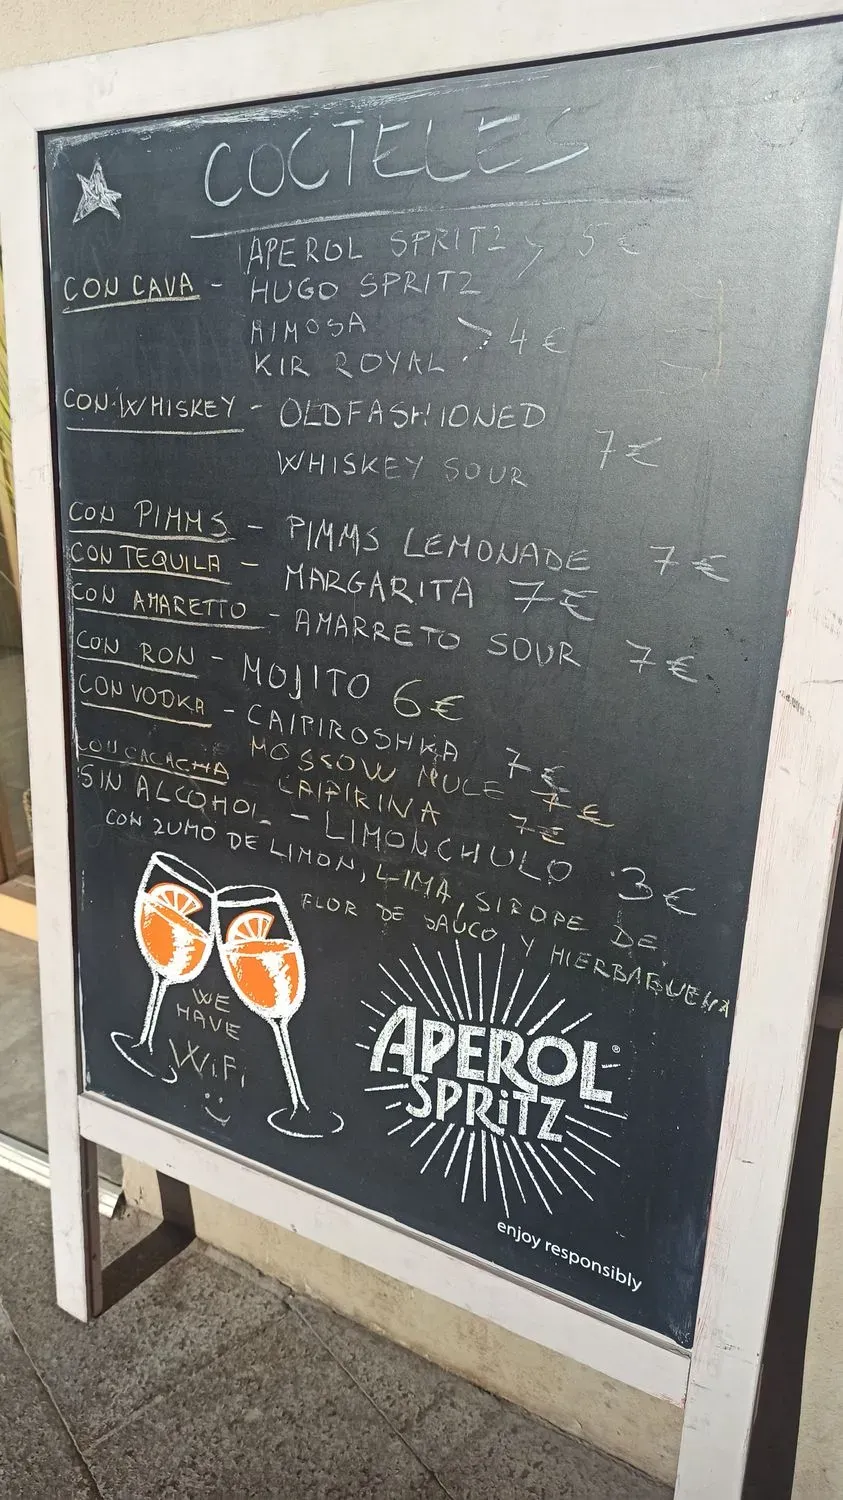 COCTELES
APEROL SPRITZ > 5 €
CON CAVA - HUGO SPRITZ
MIMOSA
KIR ROYAL > 4 €
CON WHISKEY - OLDFASHIONED
WHISKEY SOUR 7€
CON PIMMS - PIMMS LEMONADE 7€
CON TEQUILA - MARGARITA 7€
CON AMARETTO - AMARRETO SOUR 7€
CON RON - MOJITO 6€
CON VODKA - CAIPIROSHKA 7€
MOSCOW MULE 7€
CON CACACHA CAIPIRINA 7€
SIN ALCOHOL - LIMONCHULO 3€
CON ZUMO DE LIMON, LIMA, SIROPE DE
FLOR DE SAUCO Y HIERBABUENA
WE
HAVE
WiFi
APEROL®
SPRiTZ
enjoy responsibly